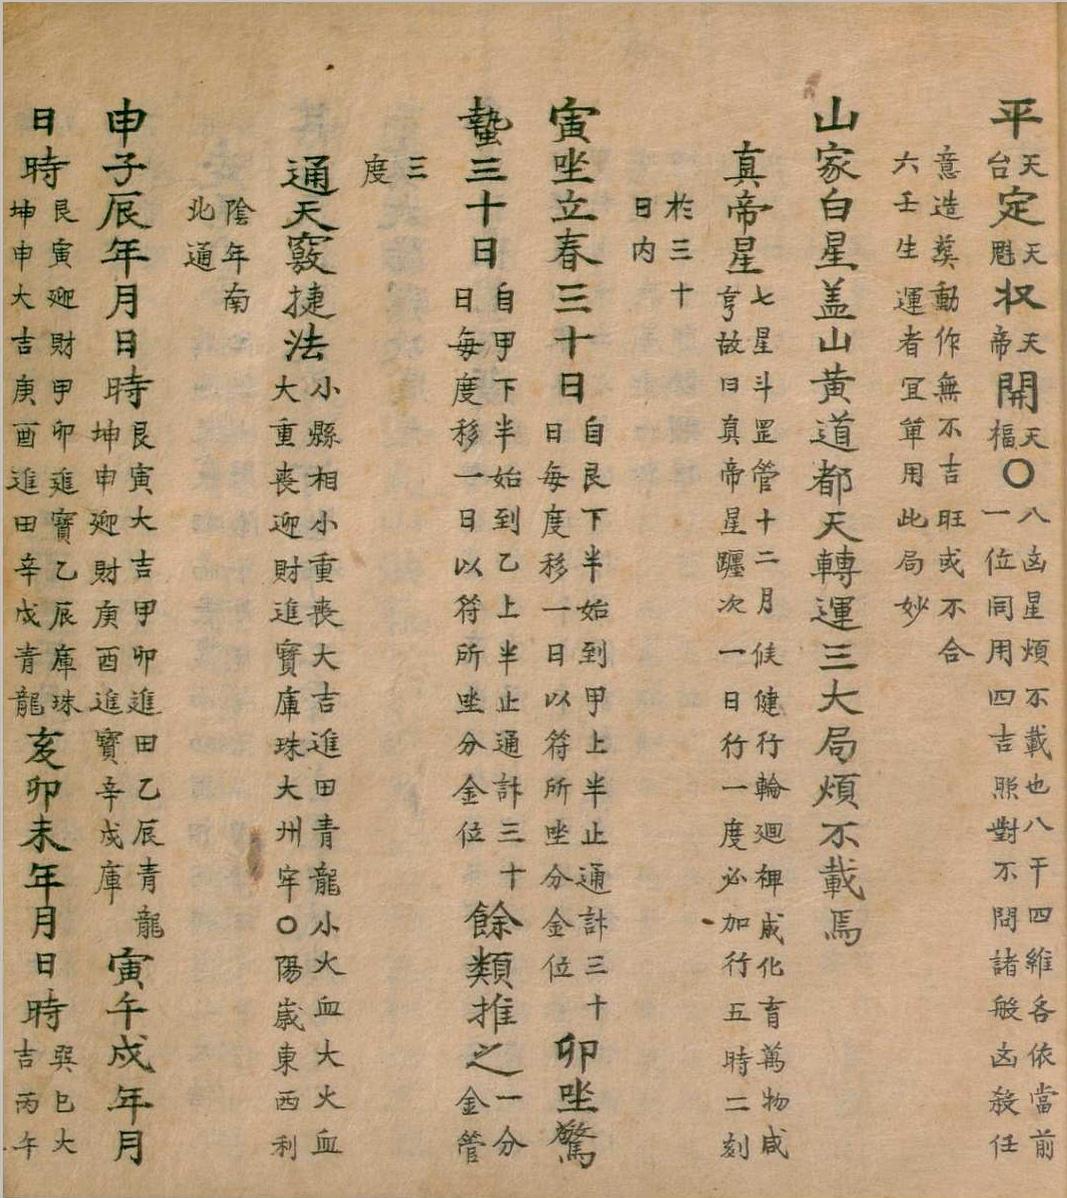 平天台定天魁权天帝開天福〇八凶星煩不載也八干四維各依當前一位同用四吉照對不問諸般凶殺任
意造葬動作無不吉旺或不合六壬生運者冝单用此局妙
山家白星盖山黄道都天轉運三大局煩不載焉
真帝星七星斗罡管十二月候健行輪廻裨成化育萬物咸亨故曰真帝星躔次一日行一度必加行五時二刻
扵三十日内
寅坐立春三十日自艮下半始到甲上半止通計三十日每度移一日以符所坐分金位卯坐驚
蟄三十日自甲下半始到乙上半止通計三十日每度移一日以符所坐分金位餘類推之一分金管
三度
通天竅捷法小縣相小重喪大吉進田青龍小火血大火血大重喪迎財進寶庫珠大州牢〇陽歳東西利
陰年南北通
申子辰年月日時艮寅大吉甲卯進田乙辰青龍坤申迎財庚酉進寶辛戌庫寅午戌年月
日時艮寅迎財甲卯進寶乙辰庫珠坤申大吉庚酉進田辛戌青龍亥卯未年月日時巽巳大吉丙午